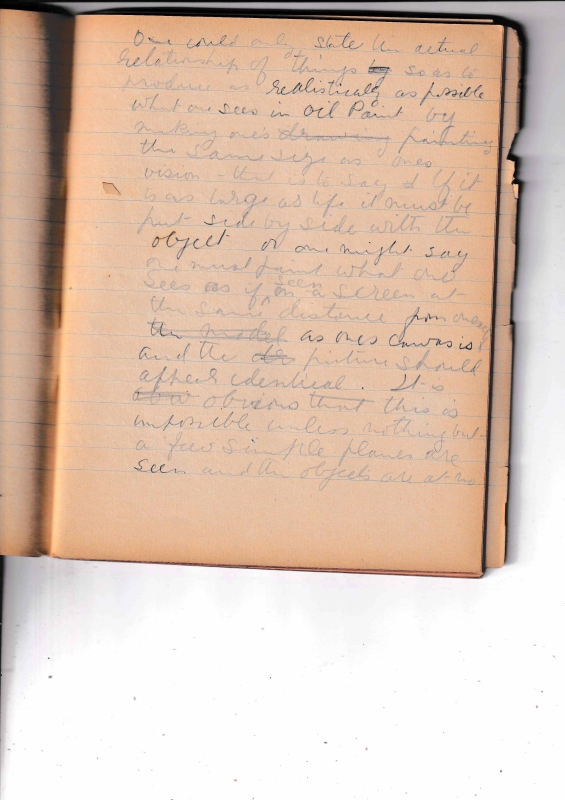 One could only state the actual
relationship of things by so as to
produce as realistically as possible
what one sees in Oil Paint by
making one's drawing painting
the same size as ones
vision - that is to say If it
is as large as life it must be
put side by side with the
object or one might say
one must paint what one
sees as if seen on a screen at
the same distance from ones
the model as ones canvas is
and the picture should
appear identical. It is
obvious that this is
impossible unless nothing but
a few simple planes are
seen and the objects are at no